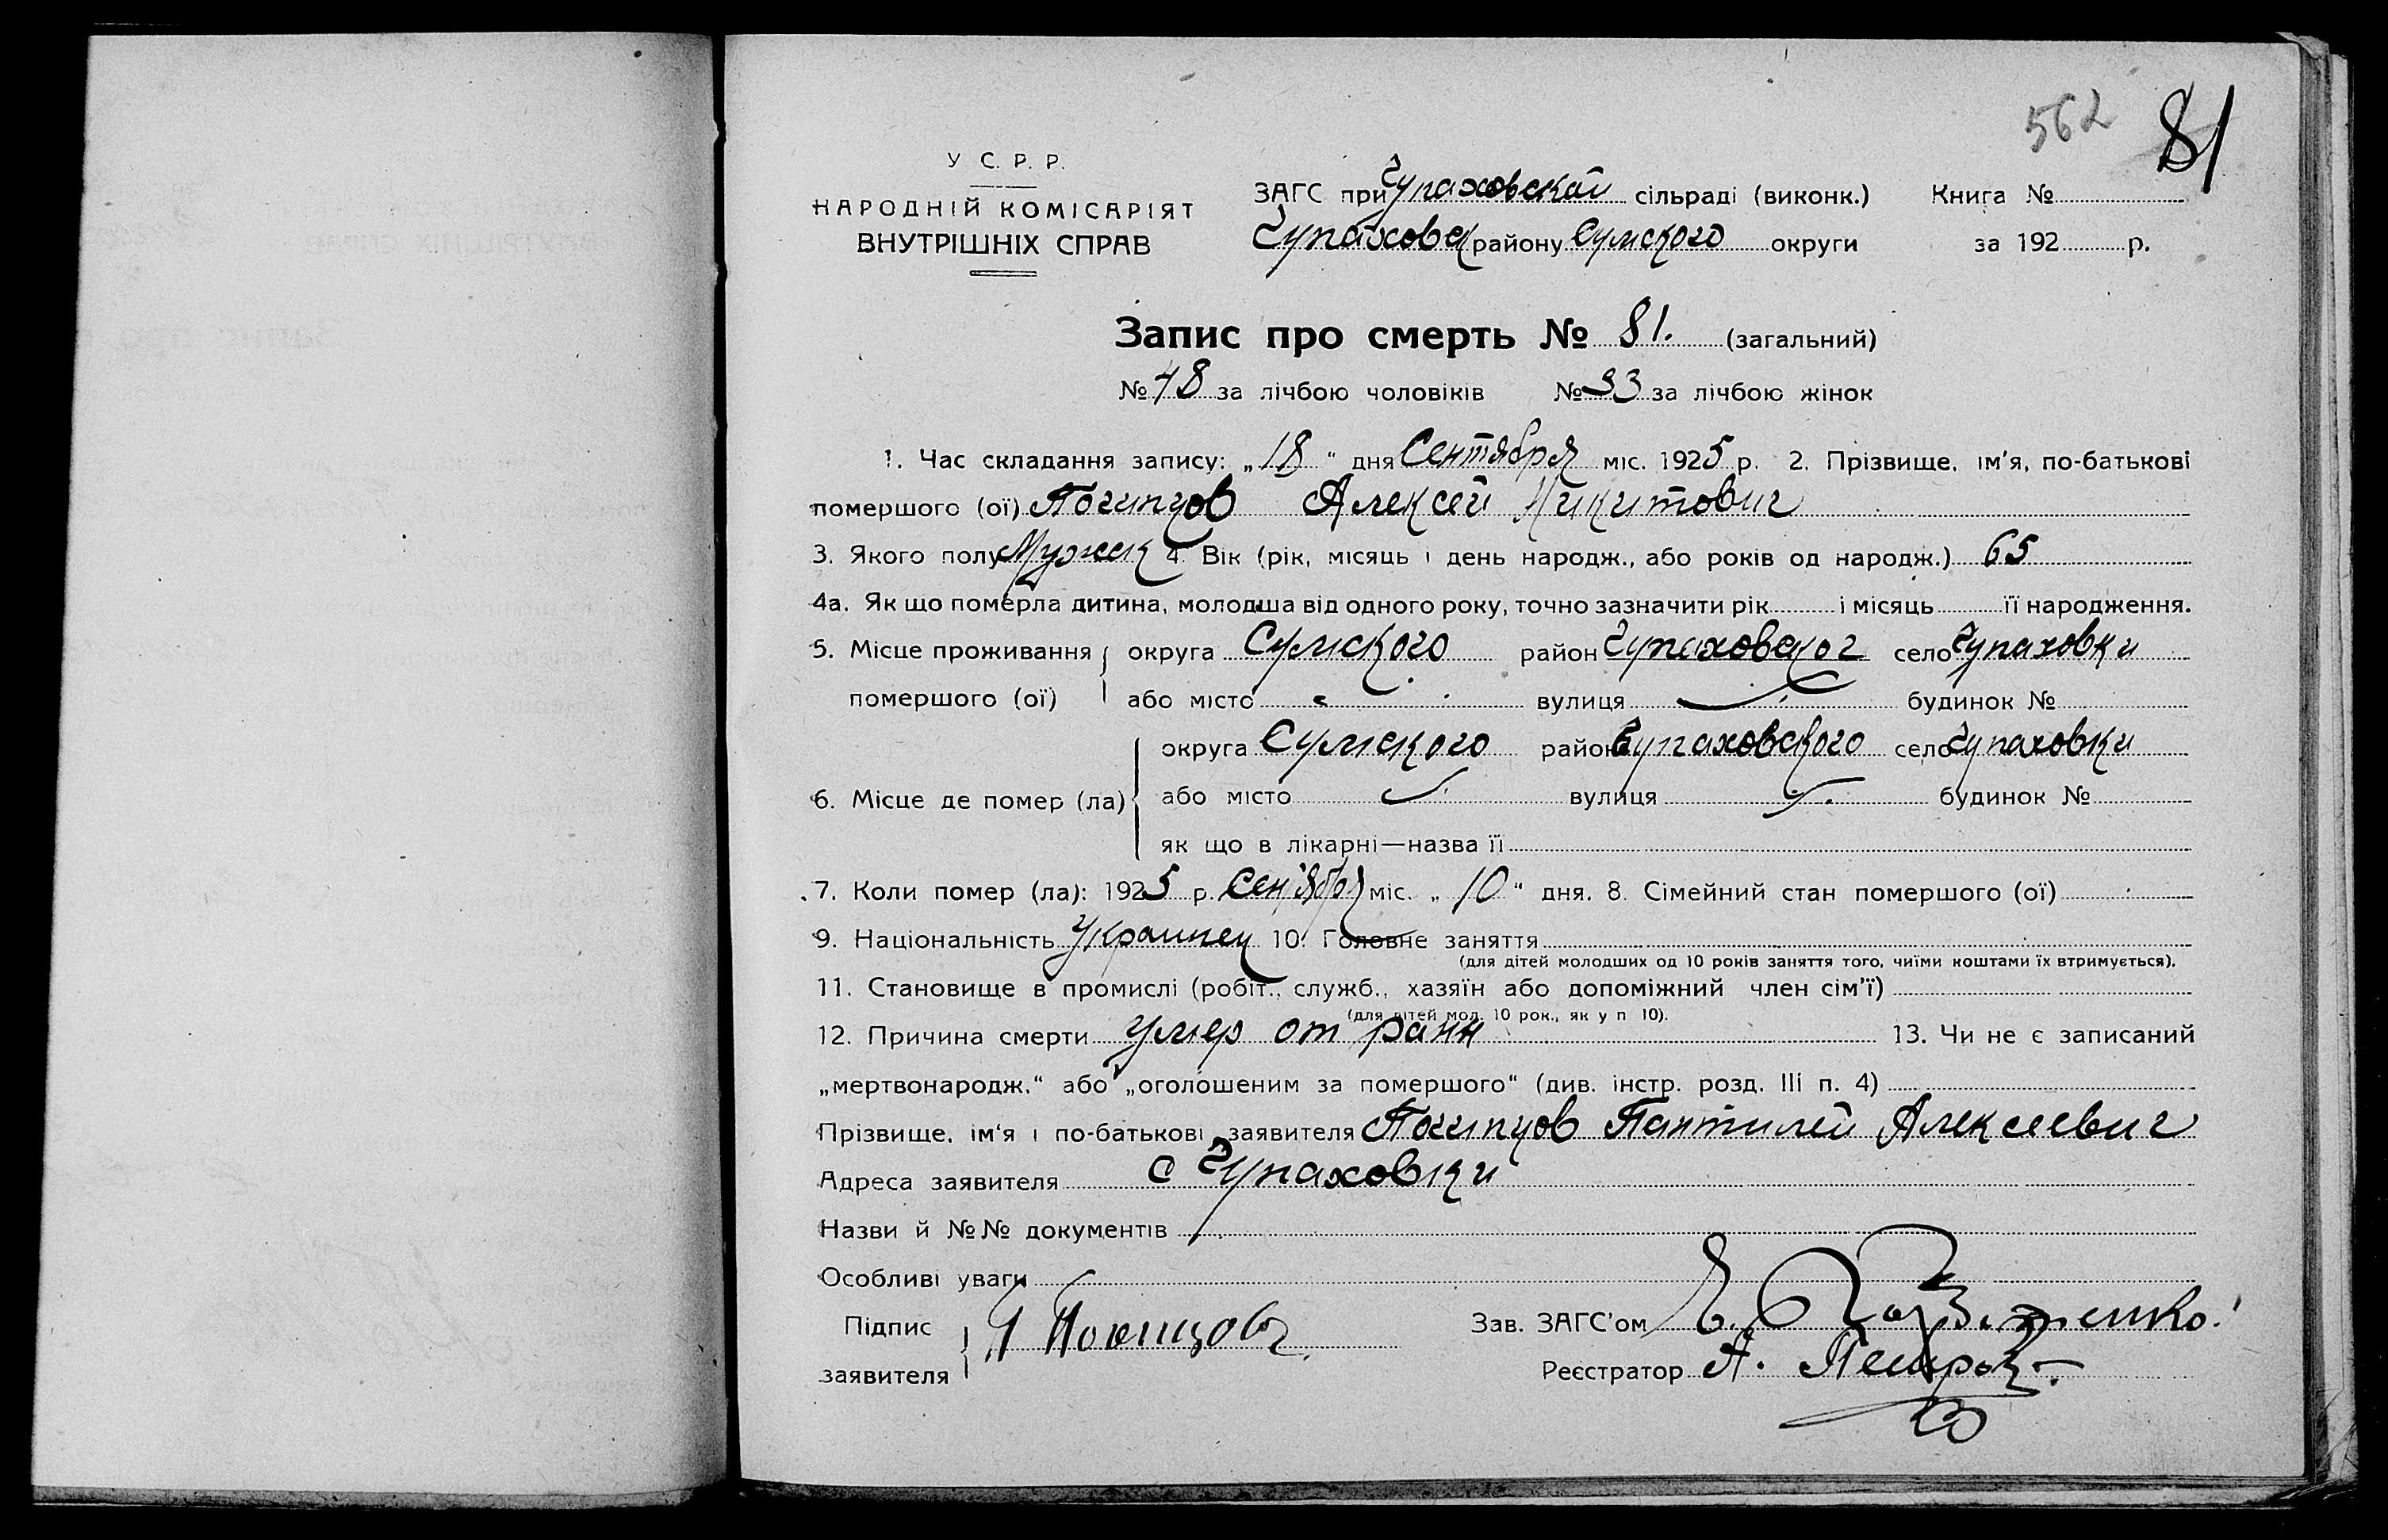 562 81
У С. Р. Р.
НАРОДНІЙ КОМІСАРІЯТ
ВНУТРІШНІХ СПРАВ
ЗАГС при Чупаховской сільраді (виконк.) Книга №
Чупаховск району Сумского округи за 192 р.
Запис про смерть № 81. (загальний)
№ 48 за лічбою чоловіків № 33 за лічбою жінок
1. Час складання запису: „18“ дня Сентября міс. 1925 р. 2. Прізвище, ім'я, по-батькові
помершого (ої) Почипцов Алексей Никитович
3. Якого полу Мужск 4. Вік (рік, місяць і день народж., або років од народж.) 65
4а. Як що померла дитина, молодша від одного року, точно зазначити рік і місяць її народження.
5. Місце проживання округа Сумского район Чупаховског село Чупаховки
помершого (ої) або місто вулиця будинок №
округа Сумского район Чупаховского село Чупаховки
6. Місце де помер (ла) або місто вулиця будинок №
як що в лікарні—назва її
7. Коли помер (ла): 1925 р. Сентября міс. „10“ дня. 8. Сімейний стан помершого (ої)
9. Національність Украинец 10. Головне заняття
(для дітей молодших од 10 років заняття того, чиїми коштами їх втримується).
11. Становище в промислі (робіт., служб., хазяїн або допоміжний член сім'ї)
(для дітей мол. 10 рок., як у п 10).
12. Причина смерти умер от ранн 13. Чи не є записаний
„мертвонародж.“ або „оголошеним за помершого“ (див. інстр. розд. III п. 4)
Прізвище, ім'я і по-батькові заявителя Почипцов Пантилей Алексеевич
Адреса заявителя с Чупаховки
Назви й №№ документів
Особливі уваги
Підпис
заявителя П Почипцов
Зав. ЗАГС'ом
Реєстратор А. Петров